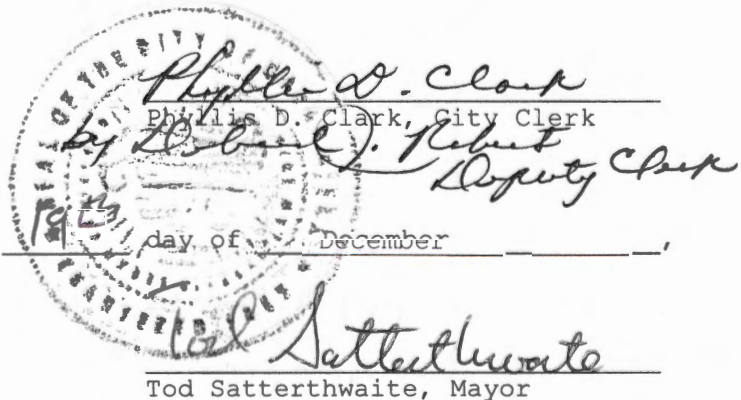 SEAL OF THE CITY OF
Phyllis D. Clark
Phyllis D. Clark, City Clerk
by Debra J. Roberts
Deputy Clerk
19th day of December ,
Tod Satterthwaite
Tod Satterthwaite, Mayor